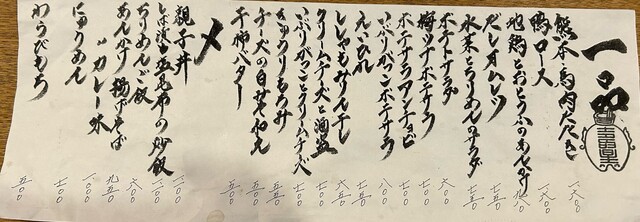 一品
熊本馬肉たたき 一六〇〇
鴨ロース 一六〇〇
地鶏とおとうふのあんかけ 九八〇
だしオムレツ 七五〇
水菜とちりめんのサラダ 七五〇
ポテトサラダ 六〇〇
梅ツナポテサラ 七〇〇
ポテサラアンチョビ 七〇〇
いぶりがっこポテサラ 八〇〇
えいひれ 七〇〇
ししゃもみりん干し 六五〇
クリームチーズと酒盗 七〇〇
いぶりがっことクリームチーズ 七〇〇
きゅうりもろみ 五五〇
チーズの白みそ和え 五五〇
干柿バター 五五〇
〆
親子丼 一一〇〇
しば漬と塩昆布の炒飯 一一〇〇
ちりめんご飯 六〇〇
あんかけ揚げそば 九五〇
〃 カレー 〃 一〇〇〇
にゅうめん 七〇〇
わらびもち 五五〇